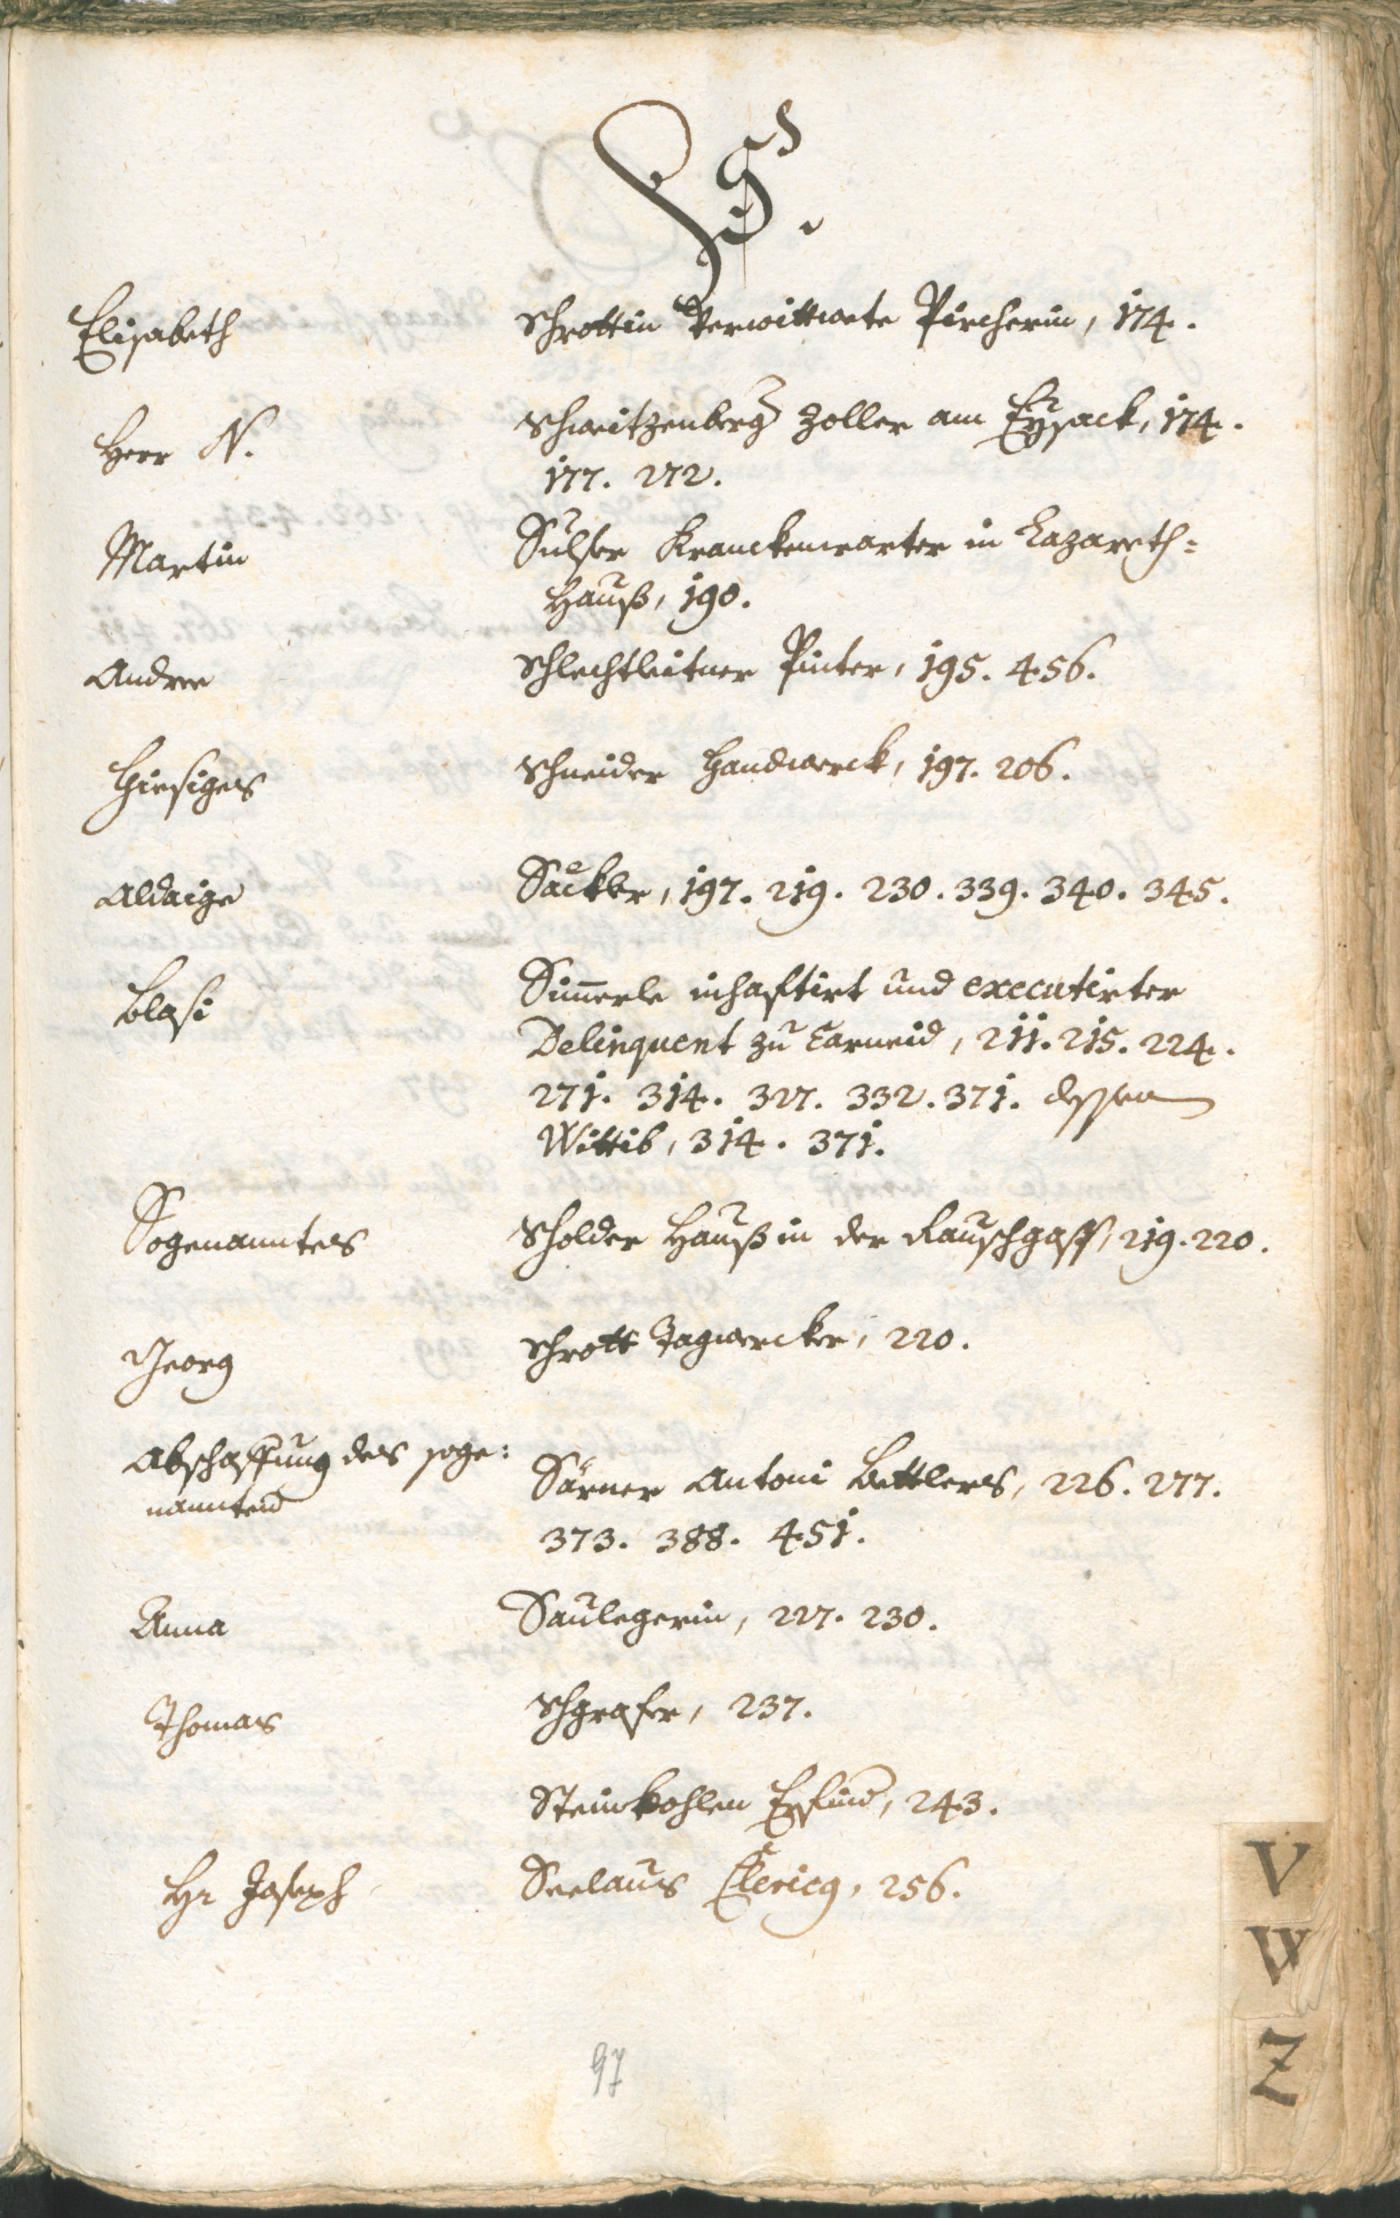 S.
Elisabeth Schrottin Verwittwete Pircherin, 174.
Herr N. Schweitzenberg Zoller am Eysack, 174.
177. 272.
Martin Sulser Kranckenwarter in Lazareth=
Hauß, 190.
Andree Schlechtleitner Pinter, 195. 456.
Hiesiges Schneider Handwerck, 197. 206.
Aldaige Säckler, 197. 219. 230. 339. 340. 345.
Blasi Sim̄erle inhaftirt und executirter
Delinquent zu Carneid, 211. 215. 224.
271. 314. 327. 332. 371. dessen
Wittib, 314. 371.
Sogenanntes Scholder Hauß in der Rauschgass, 219. 220.
Georg Schrott Tagwercker, 220.
Abschaffung des soge=
nannten Särner Antoni Bettlers, 226. 277.
373. 388. 451.
Anna Saulegerin, 227. 230.
Thomas Schgrafer, 237.
Steinkohlen Erfind, 243.
Hr Joseph Seelaus Clericg, 256.
V
W
Z
97